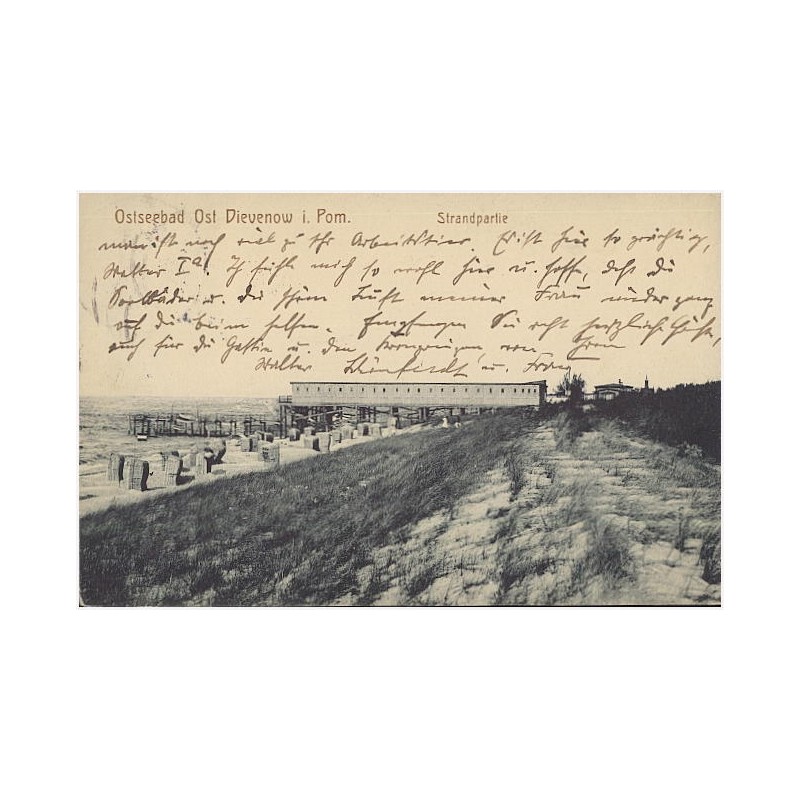 Ostseebad Ost Dievenow i. Pom. Strandpartie
man ist noch viel zu Ihr Arbeitstier. Es ist hier so prächtig,
Wetter Ia. Ich fühle mich so wohl hier u. hoffe, daß die
Soolbäder u. die Luft meiner Frau
auch die beim helfen. Empfangen Sie recht herzliche Grüße,
auch für die Gattin u. den von Ihrem
Walter u. Frau